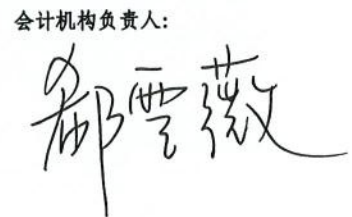 会计机构负责人:
郗雲薇